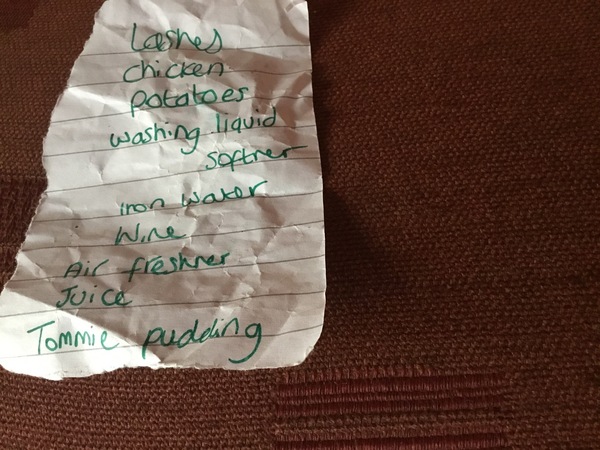 Lashes
chicken
potatoes
washing liquid
softner
iron water
Wine
Air freshner
Juice
Tommie pudding